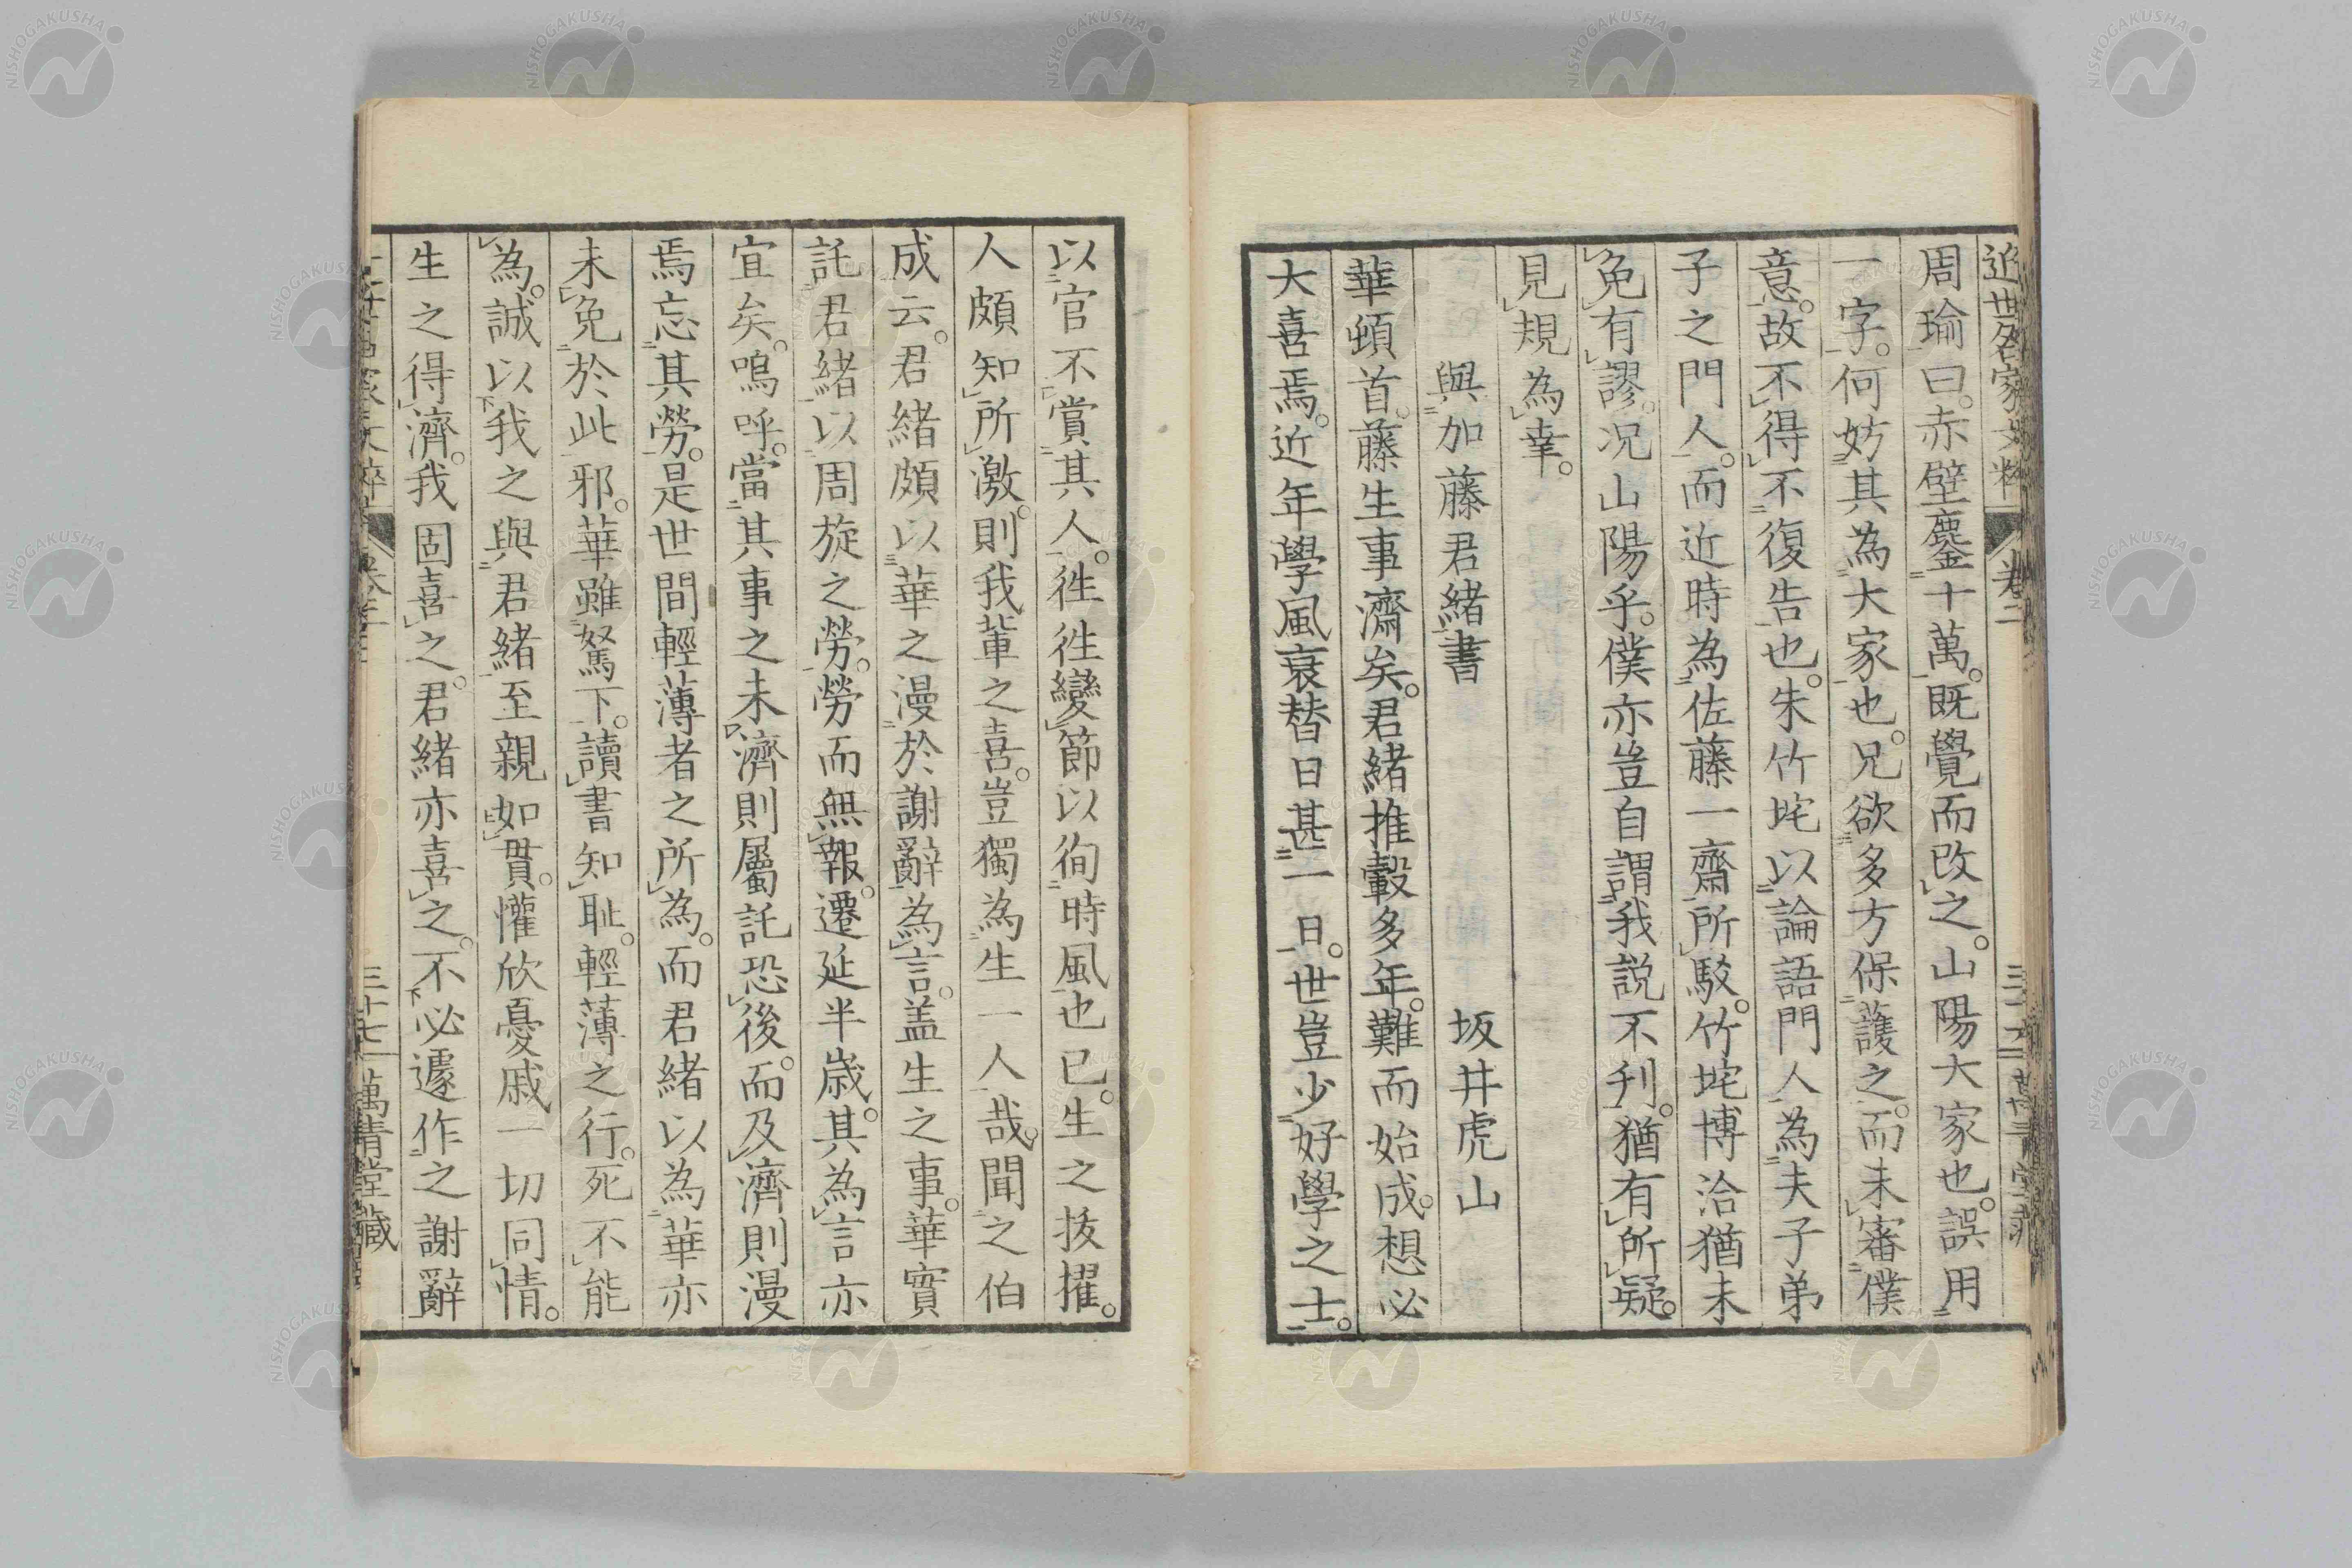 近世名家文粹 卷二
周瑜曰。赤壁鏖十萬。既覺而改之。山陽大家也。誤用
一字。何妨其為大家也。兄欲多方保護之。而未審僕
意。故不得不復告也。朱竹垞以論語門人為夫子弟
子之門人。而近時為佐藤一齋所駁。竹垞博洽猶未
免有謬。况山陽乎。僕亦豈自謂我説不刋。猶有所疑。
見規為幸。
與加藤君緒書 坂井虎山
華頓首。藤生事濟矣。君緒推轂多年。難而始成。想必
大喜焉。近年學風衰替日甚一日。世豈少好學之士。
以官不賞其人。徃徃變節以徇時風也已。生之抜擢。
人頗知所激。則我輩之喜。豈獨為生一人哉。聞之伯
成云。君緒頗以華之漫於謝辭為言。盖生之事。華實
託君緒以周旋之勞。勞而無報。遷延半歳。其為言亦
宜矣。嗚呼。當其事之未濟則屬託恐後。而及濟則漫
焉忘其勞。是世間輕薄者之所為。而君緒以為華亦
未免於此邪。華雖駑下。讀書知耻。輕薄之行。死不能
為。誠以我之與君緒至親如貫。懽欣憂戚一切同情。
生之得濟。我固喜之。君緒亦喜之。不必遽作之謝辭
三十七 萬青堂藏
NISHOGAKUSHA